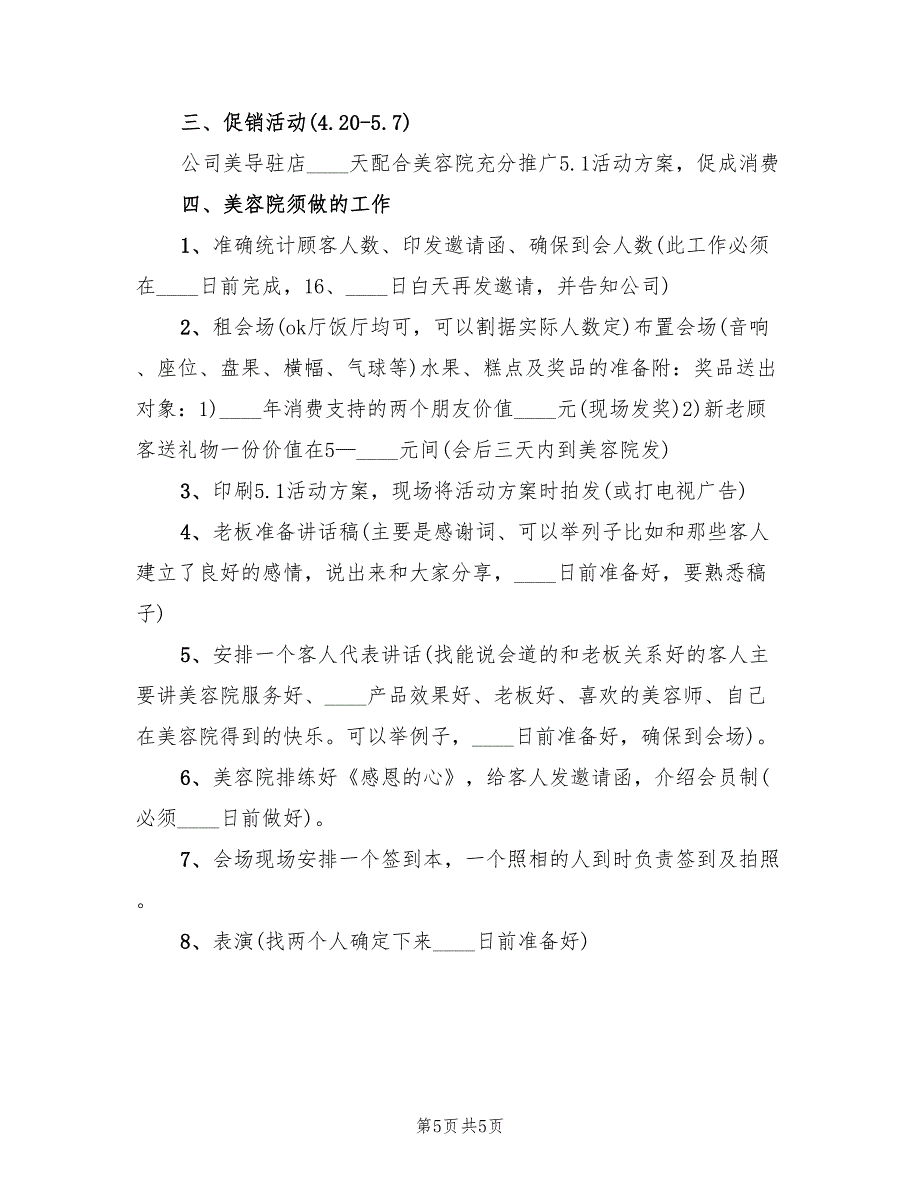 三、促销活动(4.20-5.7)
公司美导驻店____天配合美容院充分推广5.1活动方案，促成消费
四、美容院须做的工作
1、准确统计顾客人数、印发邀请函、确保到会人数(此工作必须
在____日前完成，16、____日白天再发邀请，并告知公司)
2、租会场(ok厅饭厅均可，可以割据实际人数定)布置会场(音响
、座位、盘果、横幅、气球等)水果、糕点及奖品的准备附：奖品送出
对象：1)____年消费支持的两个朋友价值____元(现场发奖)2)新老顾
客送礼物一份价值在5—____元间(会后三天内到美容院发)
3、印刷5.1活动方案，现场将活动方案时拍发(或打电视广告)
4、老板准备讲话稿(主要是感谢词、可以举列子比如和那些客人
建立了良好的感情，说出来和大家分享，____日前准备好，要熟悉稿
子)
5、安排一个客人代表讲话(找能说会道的和老板关系好的客人主
要讲美容院服务好、____产品效果好、老板好、喜欢的美容师、自己
在美容院得到的快乐。可以举例子，____日前准备好，确保到会场)。
6、美容院排练好《感恩的心》，给客人发邀请函，介绍会员制(
必须____日前做好)。
7、会场现场安排一个签到本，一个照相的人到时负责签到及拍照
。
8、表演(找两个人确定下来____日前准备好)
第5页共5页